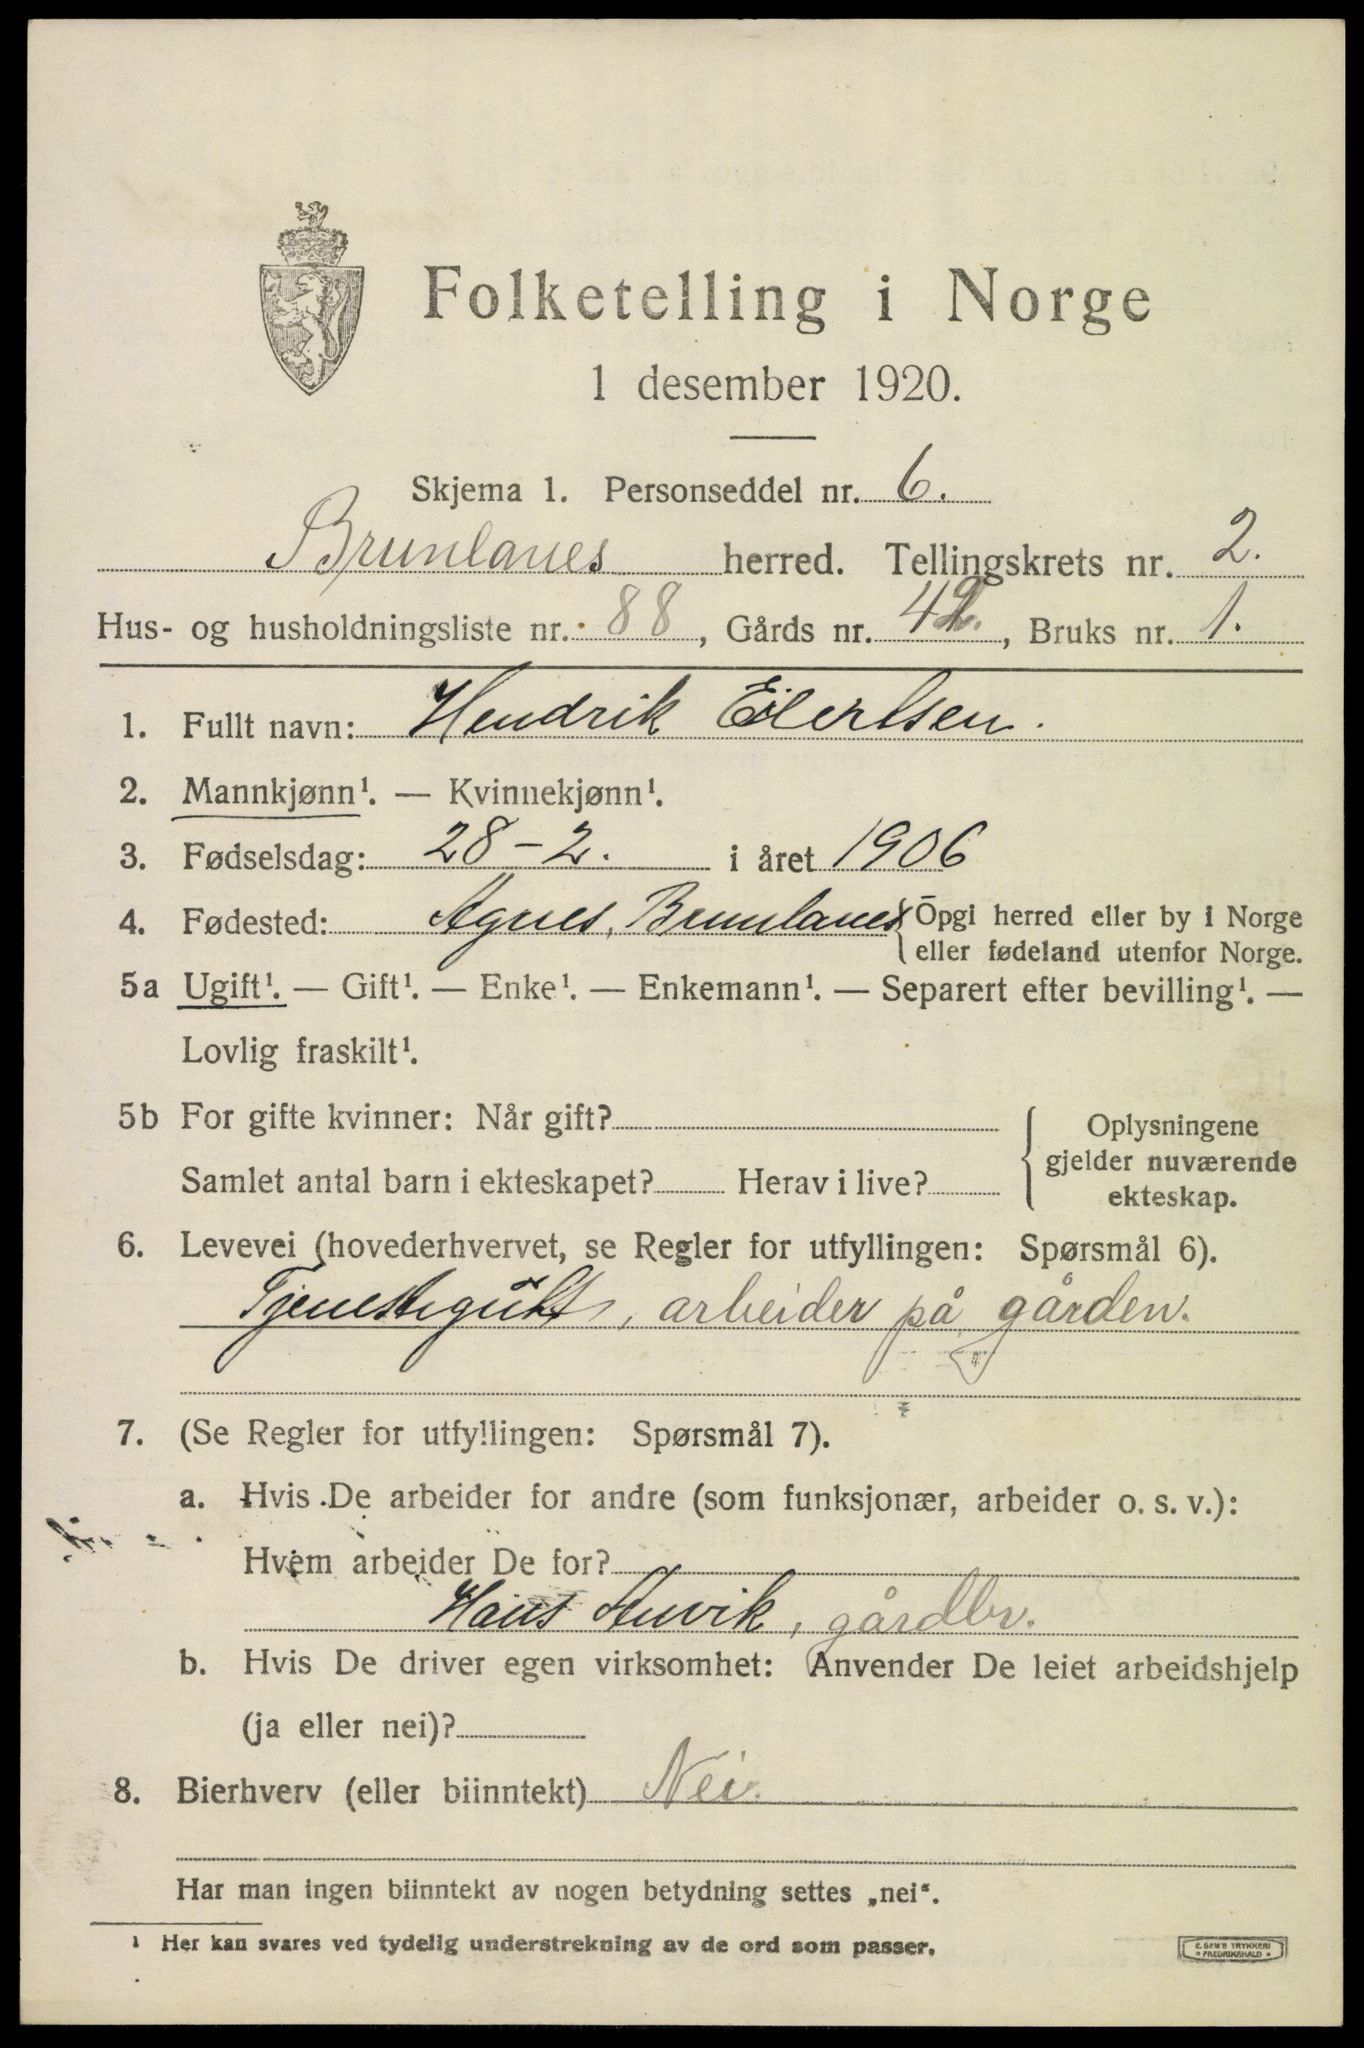 Folketelling i Norge
1 desember 1920.
Skjema 1. Personseddel nr. 6.
Brunlanes herred. Tellingskrets nr. 2.
Hus- og husholdningsliste nr. 88, Gårds nr. 42., Bruks nr. 1.
1. Fullt navn: Hendrik Eilertsen.
2. Mannkjønn¹. — Kvinnekjønn¹.
3. Fødselsdag: 28-2. i året 1906
4. Fødested: Agnes, Brunlanes { Opgi herred eller by i Norge
eller fødeland utenfor Norge.
5a Ugift¹. — Gift¹. — Enke¹. — Enkemann¹. — Separert efter bevilling¹. —
Lovlig fraskilt¹.
5b For gifte kvinner: Når gift?
Samlet antal barn i ekteskapet? Herav i live?
{ Oplysningene
gjelder nuværende
ekteskap.
6. Levevei (hovederhvervet, se Regler for utfyllingen: Spørsmål 6).
Tjenestegutt, arbeider på gården.
7. (Se Regler for utfyllingen: Spørsmål 7).
a. Hvis De arbeider for andre (som funksjonær, arbeider o. s. v.):
Hvem arbeider De for?
Hans Anvik, gårdbr.
b. Hvis De driver egen virksomhet: Anvender De leiet arbeidshjelp
(ja eller nei)?
8. Bierhverv (eller biinntekt) Nei.
Har man ingen biinntekt av nogen betydning settes „nei“.
¹ Her kan svares ved tydelig understrekning av de ord som passer.
E. SEM'S TRYKKERI
FREDRIKSHALD